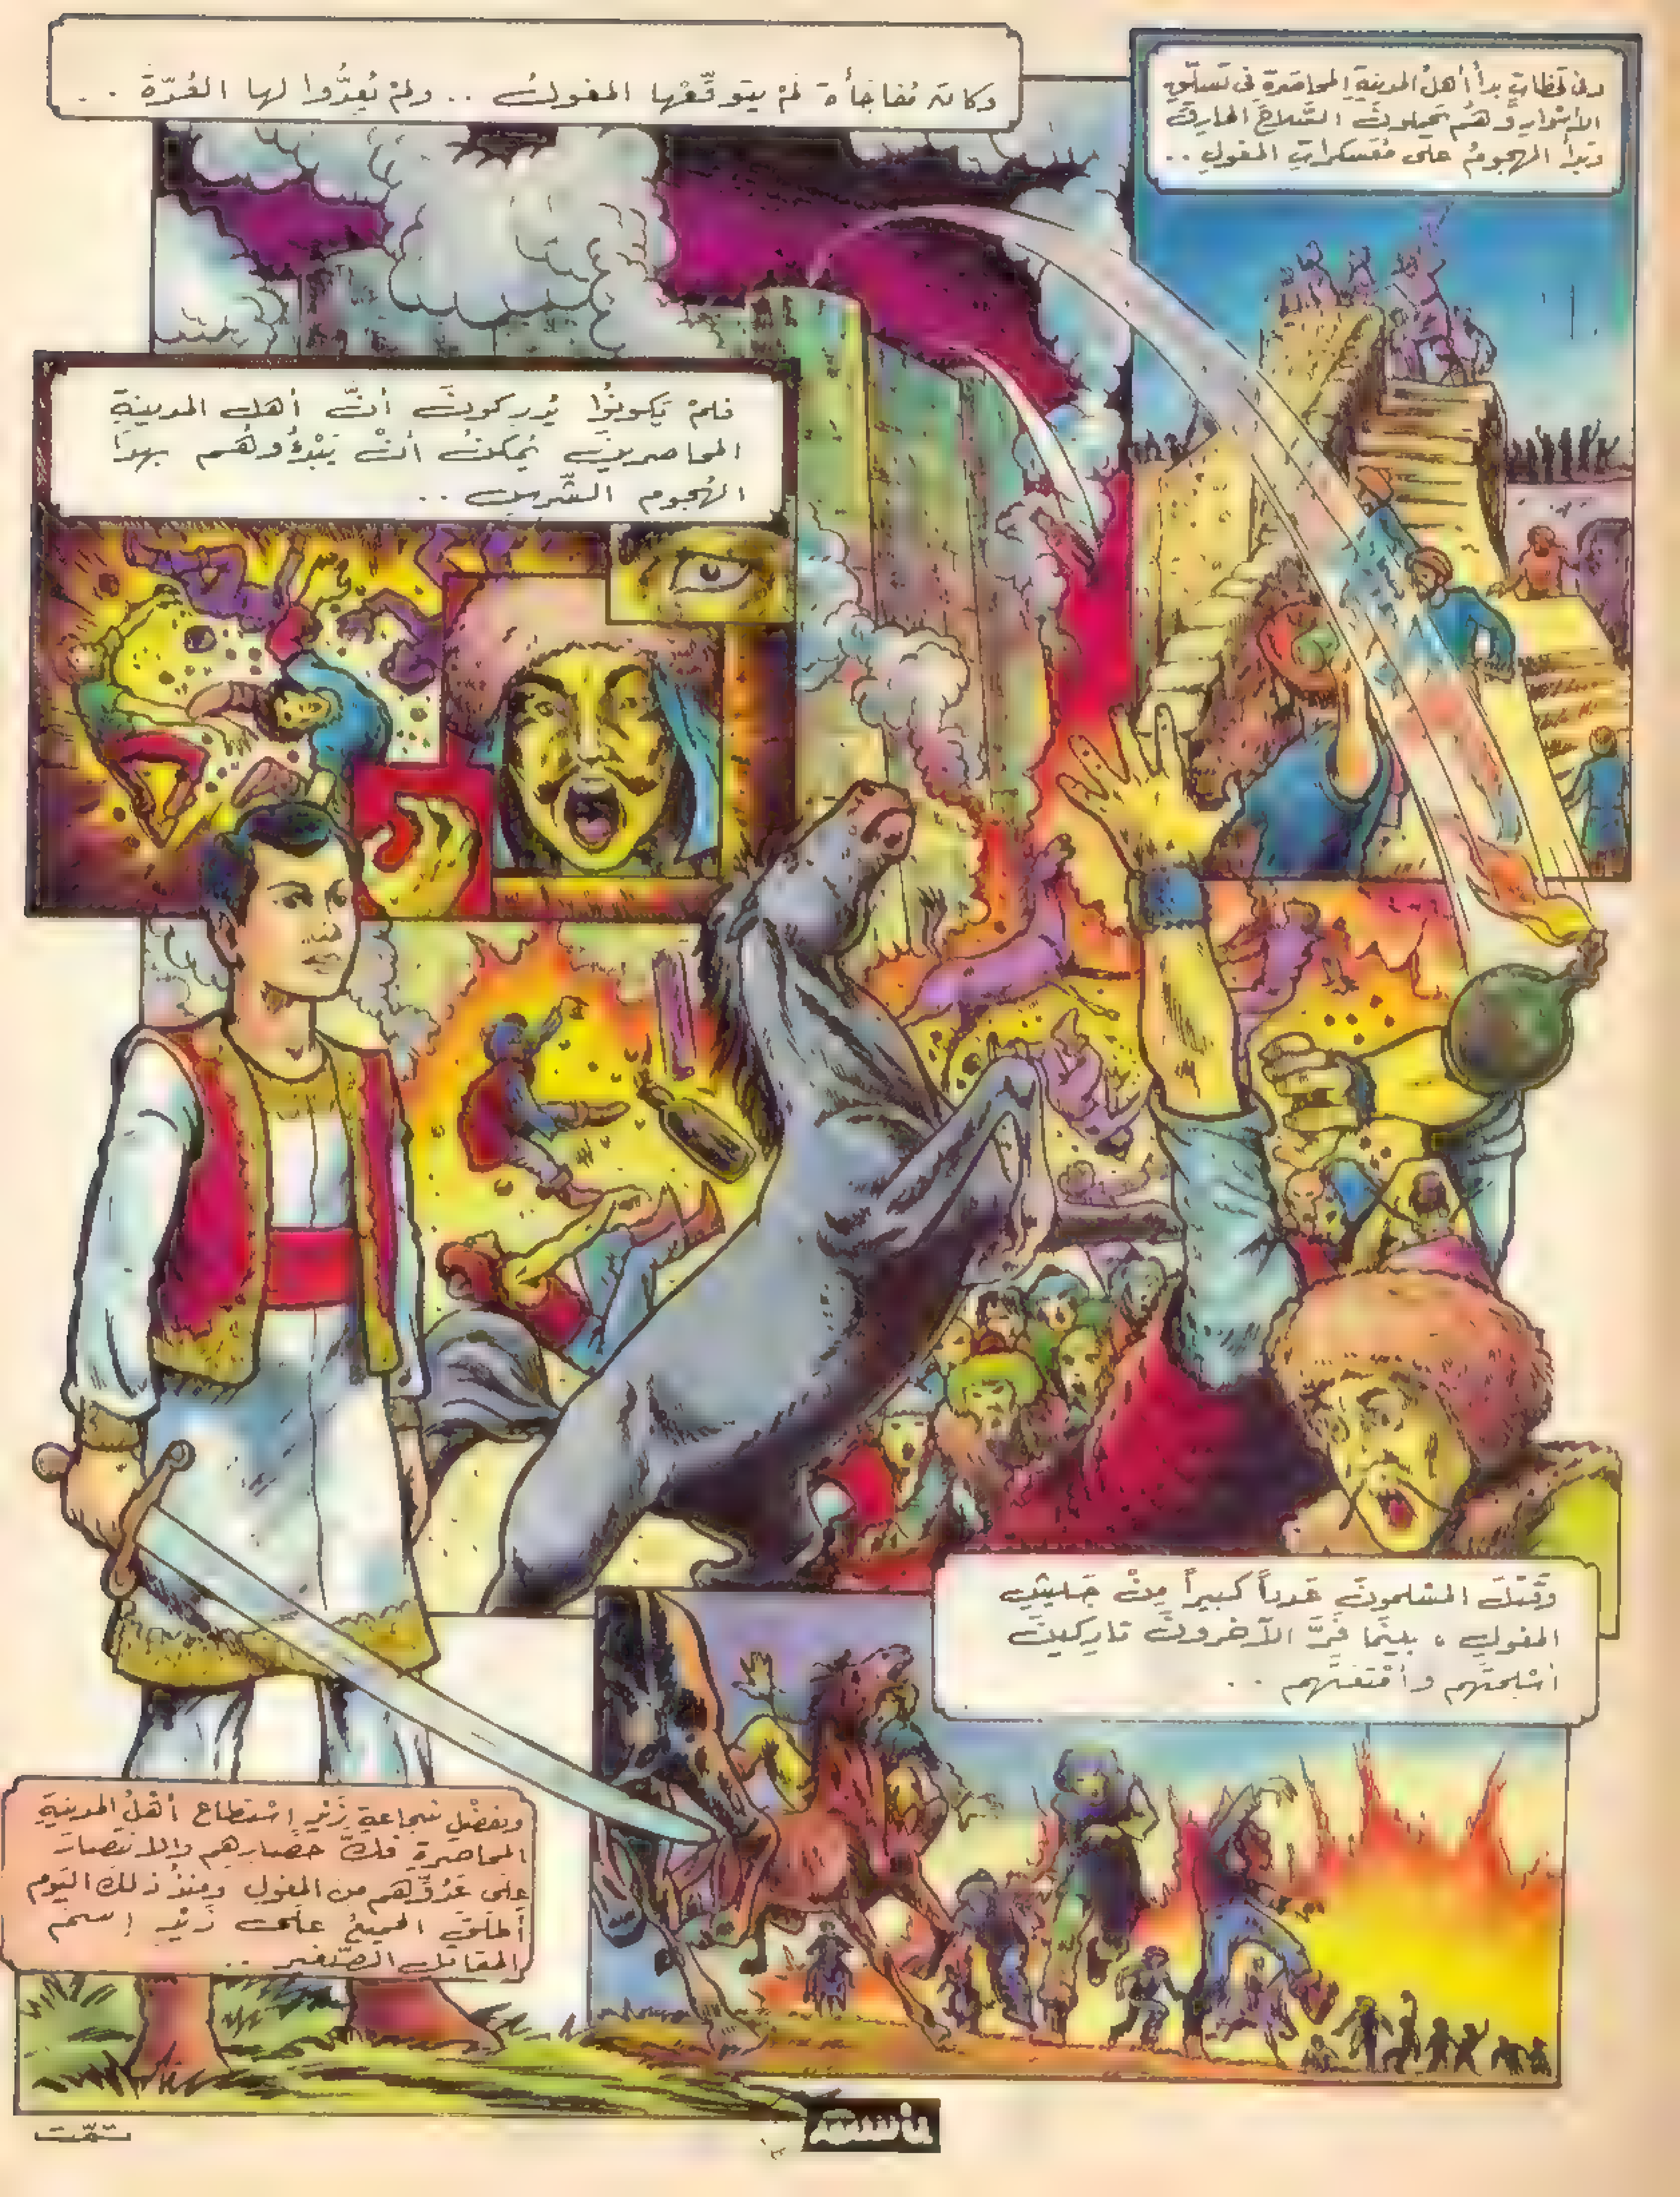 وفي لحظاتٍ بدأ أهلُ المدينةِ المحاصَرةِ في تسلّقِ
الأسْوارِ وهُم يَحمِلونَ السِّلاحَ الحارِقَ
وبَدأ الهجومُ على مُعَسكراتِ المغولِ ..
وكانت مُفاجأة لمْ يتوقّعْها المغولُ .. ولمْ يُعِدُّوا لها العُدّةَ ..
فلمْ يَكونُوا يُدرِكونَ أنّ أهل المدينةِ
المحاصرينَ يُمكنُ أنْ يَبْدءُوهُم بهذا
الهُجومِ الشّرِسِ ..
وَقَتَلَ المسْلمونَ عَدداً كبيراً مِنْ جَيشِ
المغولِ ، بينَما فَرَّ الآخرونَ تارِكينَ
أسْلِحتَهم وأمْتعَتَهم ..
وبفضْلِ شجاعةِ زَيْدٍ اسْتطاع أهْلُ المدينةِ
المحاصرةِ فكّ حصارِهم والانتصارَ
على عَدُوِّهم من المغولِ ومُنذُ ذلكَ اليَوم
أطلقَ الجميعُ على زَيْدٍ إسمَ
المقاتل الصّغير ..
تمّت